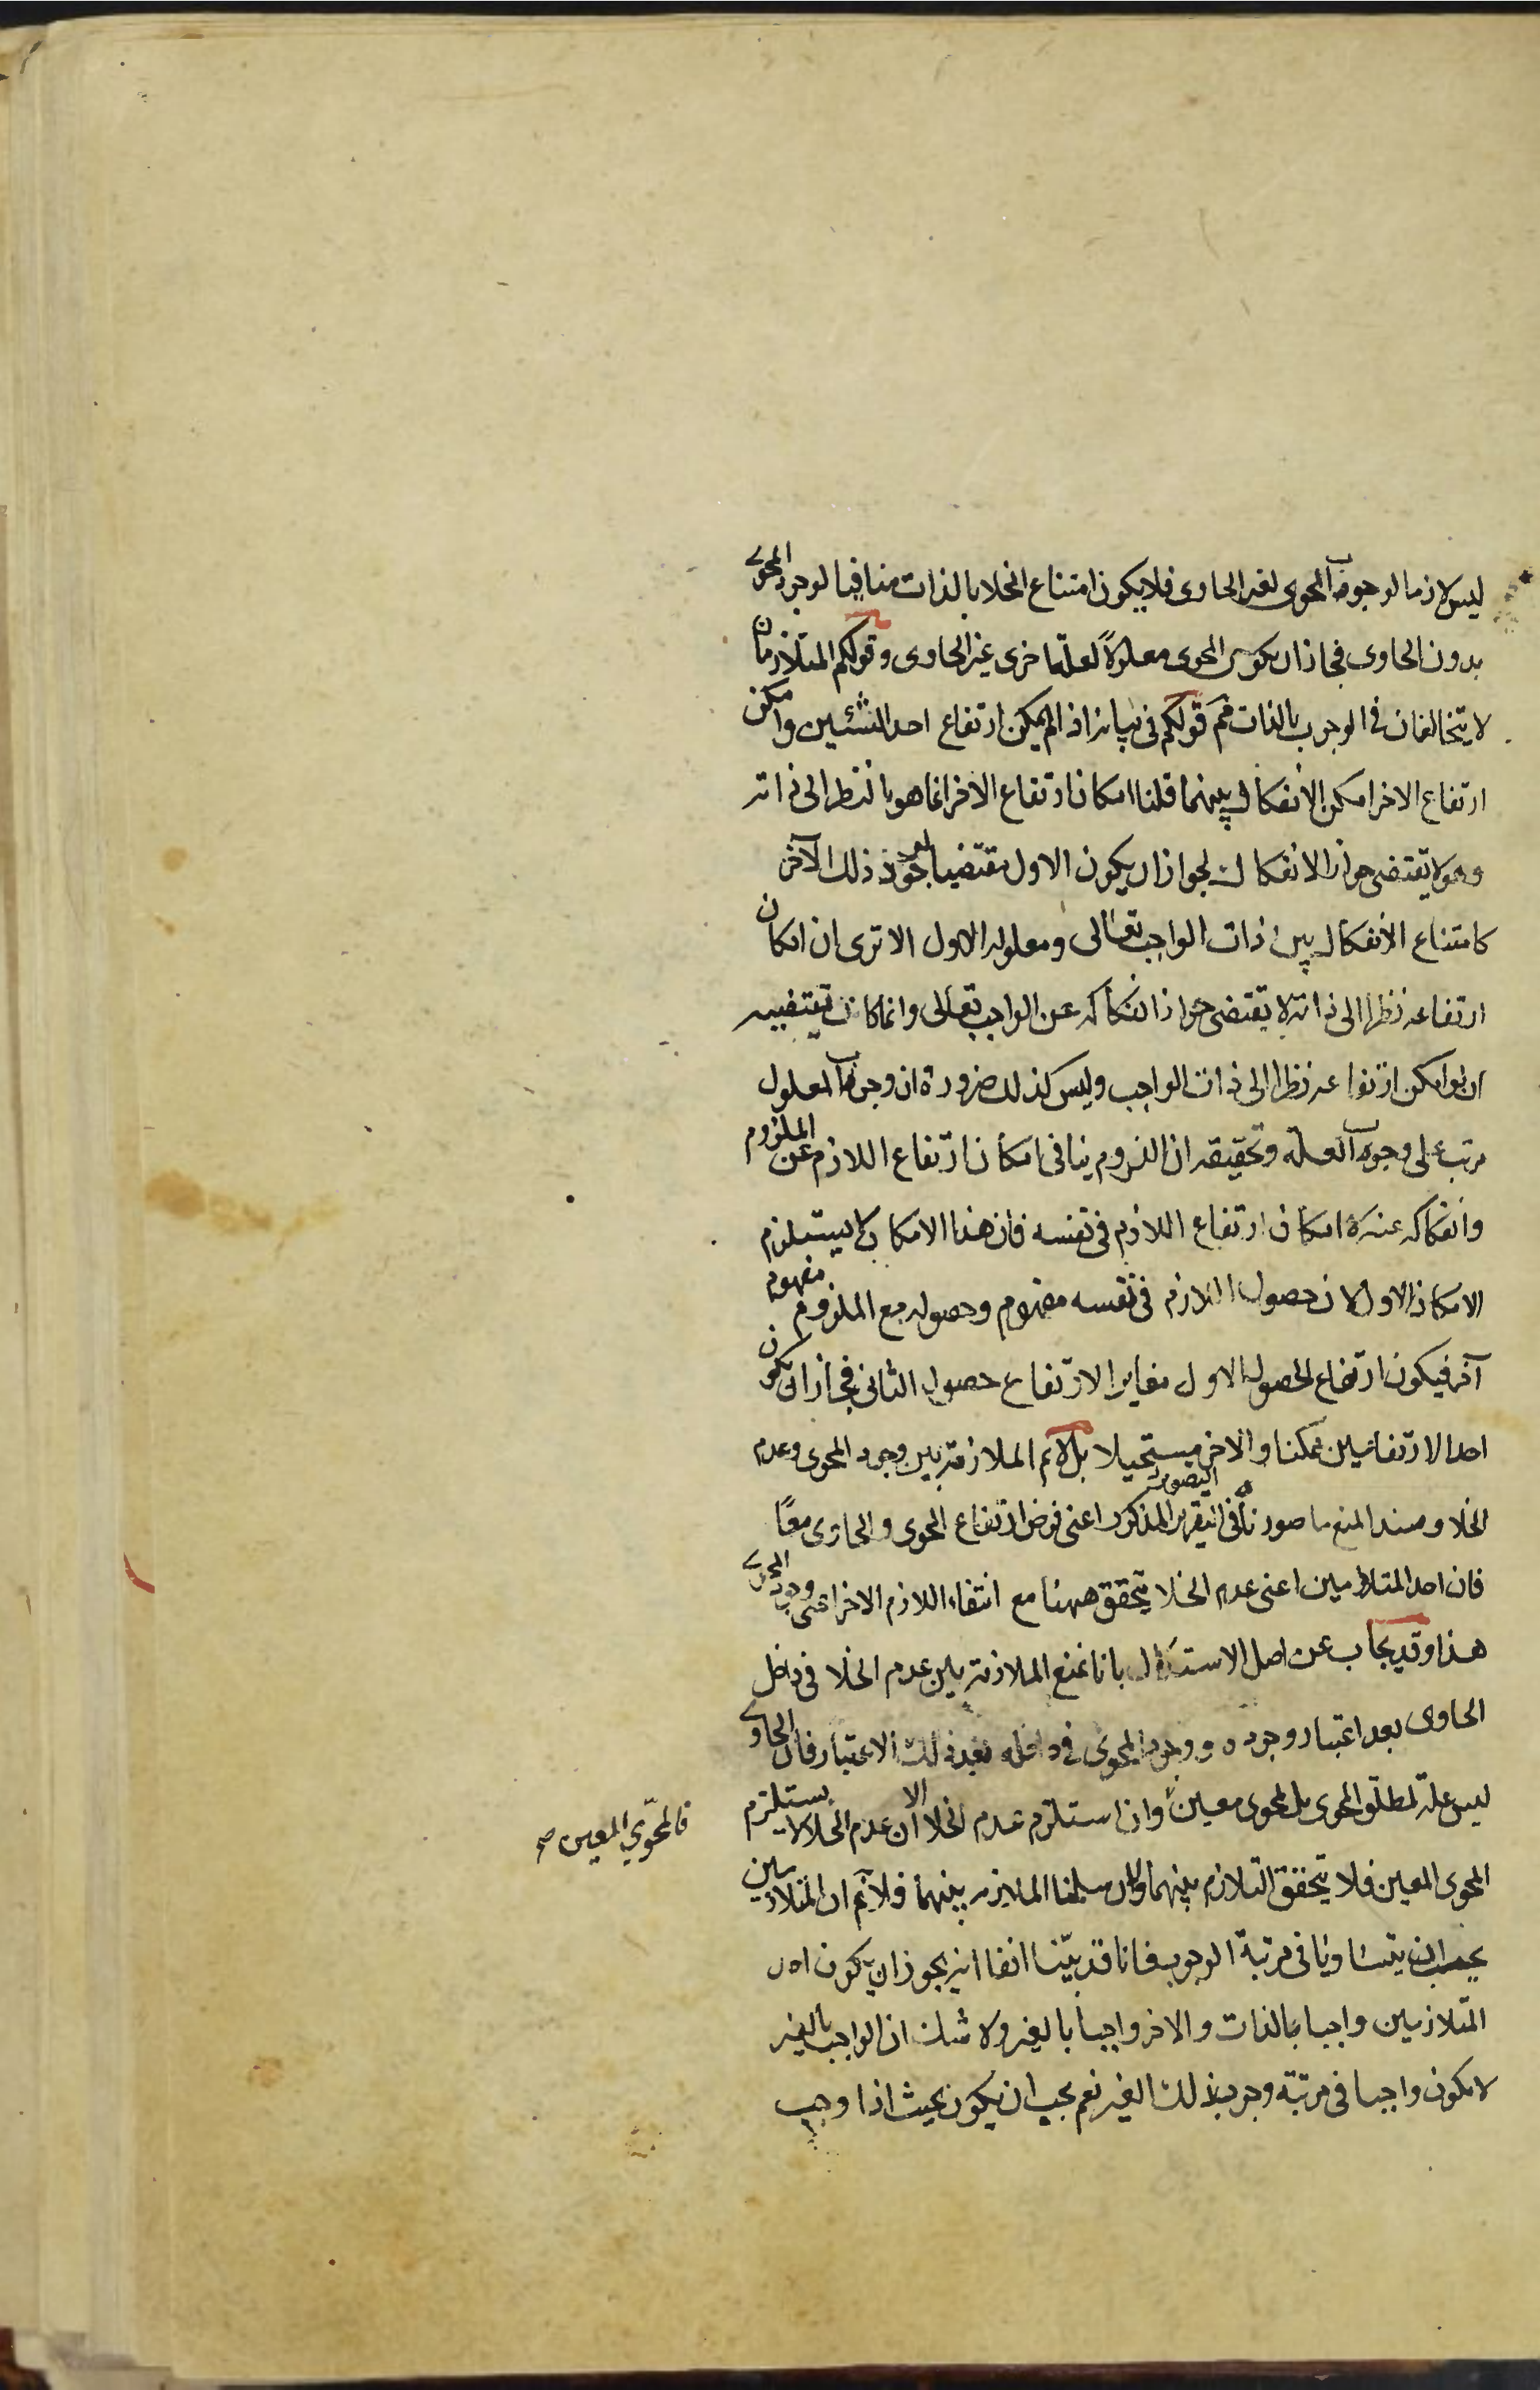 ليس لازما لوجوب المحوى لغير الحاوى فلا يكون امتناع الخلا بالذات منافيا لوجود المحوى
بدون الحاوى فجاز ان يكون المحوى معلولاً لعلة اخرى غير الحاوى وقولكم المتلازمان
لا يتخالفان في الوجوب بالذات مم قولكم في بيانه اذا لم يمكن ارتفاع احد الشئين وامكن
ارتفاع الاخر امكن الانفكاك بينهما قلنا امكان ارتفاع الاخر انما هو بالنظر الى ذاته
وهو لا يقتضى جواز الانفكاك لجواز ان يكون الاول مقتضيا ذلك الآخر
كامتناع الانفكاك بين ذات الواجب تعالى ومعلوله الاول الا ترى ان امكان
ارتفاعه نظرا الى ذاته لا يقتضى جواز انفكاكه عن الواجب تعالى وانما كان يقتضيه
ان لو امكن ارتفاعه نظرا الى ذات الواجب وليس كذلك ضرورة ان وجوب المعلول
مرتب على وجوب العلة وتحقيقه ان اللزوم ينافى امكان ارتفاع اللازم عن الملزوم
وانفكاكه عنه لا امكان ارتفاع اللازم في نفسه فان هذا الامكان لا يستلزم
الامكان الاول لان حصول اللازم في نفسه مفهوم وحصوله مع الملزوم مفهوم
آخر فيكون ارتفاع الحصول الاول مغايرا لارتفاع حصول الثانى فجاز ان يكون
احد الارتفاعين ممكنا والاخر مستحيلا بل لا نم الملازمة بين وجود المحوى وعدم
الخلا ومسند المنع ما صورناه في التقرير التصوير المذكور اعنى فرض ارتفاع المحوى والحاوى معًا
فان احد المتلازمين اعنى عدم الخلا يتحقق ههنا مع انتفاء اللازم الاخر اعنى وجود المحوى
هذا وقد يجاب عن اصل الاستدلال بانا نمنع الملازمة بين عدم الخلا في داخل
الحاوى بعد اعتبار وجوده ووجود المحوى في داخله بعد ذلك الاعتبار فان الحاوى
ليس علة لمطلق المحوى بل لمحوى معين وان استلزم عدم الخلا الا ان عدم الخلا لا يستلزم
فالمحوّي المعين صح
المحوى المعين فلا يتحقق التلازم بينهما ولان سلمنا الملازمة بينهما فلا نم ان المتلازمين
يجب ان يتساويا في مرتبة الوجوب فانا قد بيّنا انفا انه يجوز ان يكون احد
المتلازمين واجبا بالذات والاخر واجبا بالغير ولا شك ان الواجب بالغير
لا يكون واجبا في مرتبة وجوب ذلك الغير نعم يجب ان يكون بحيث اذا وجب